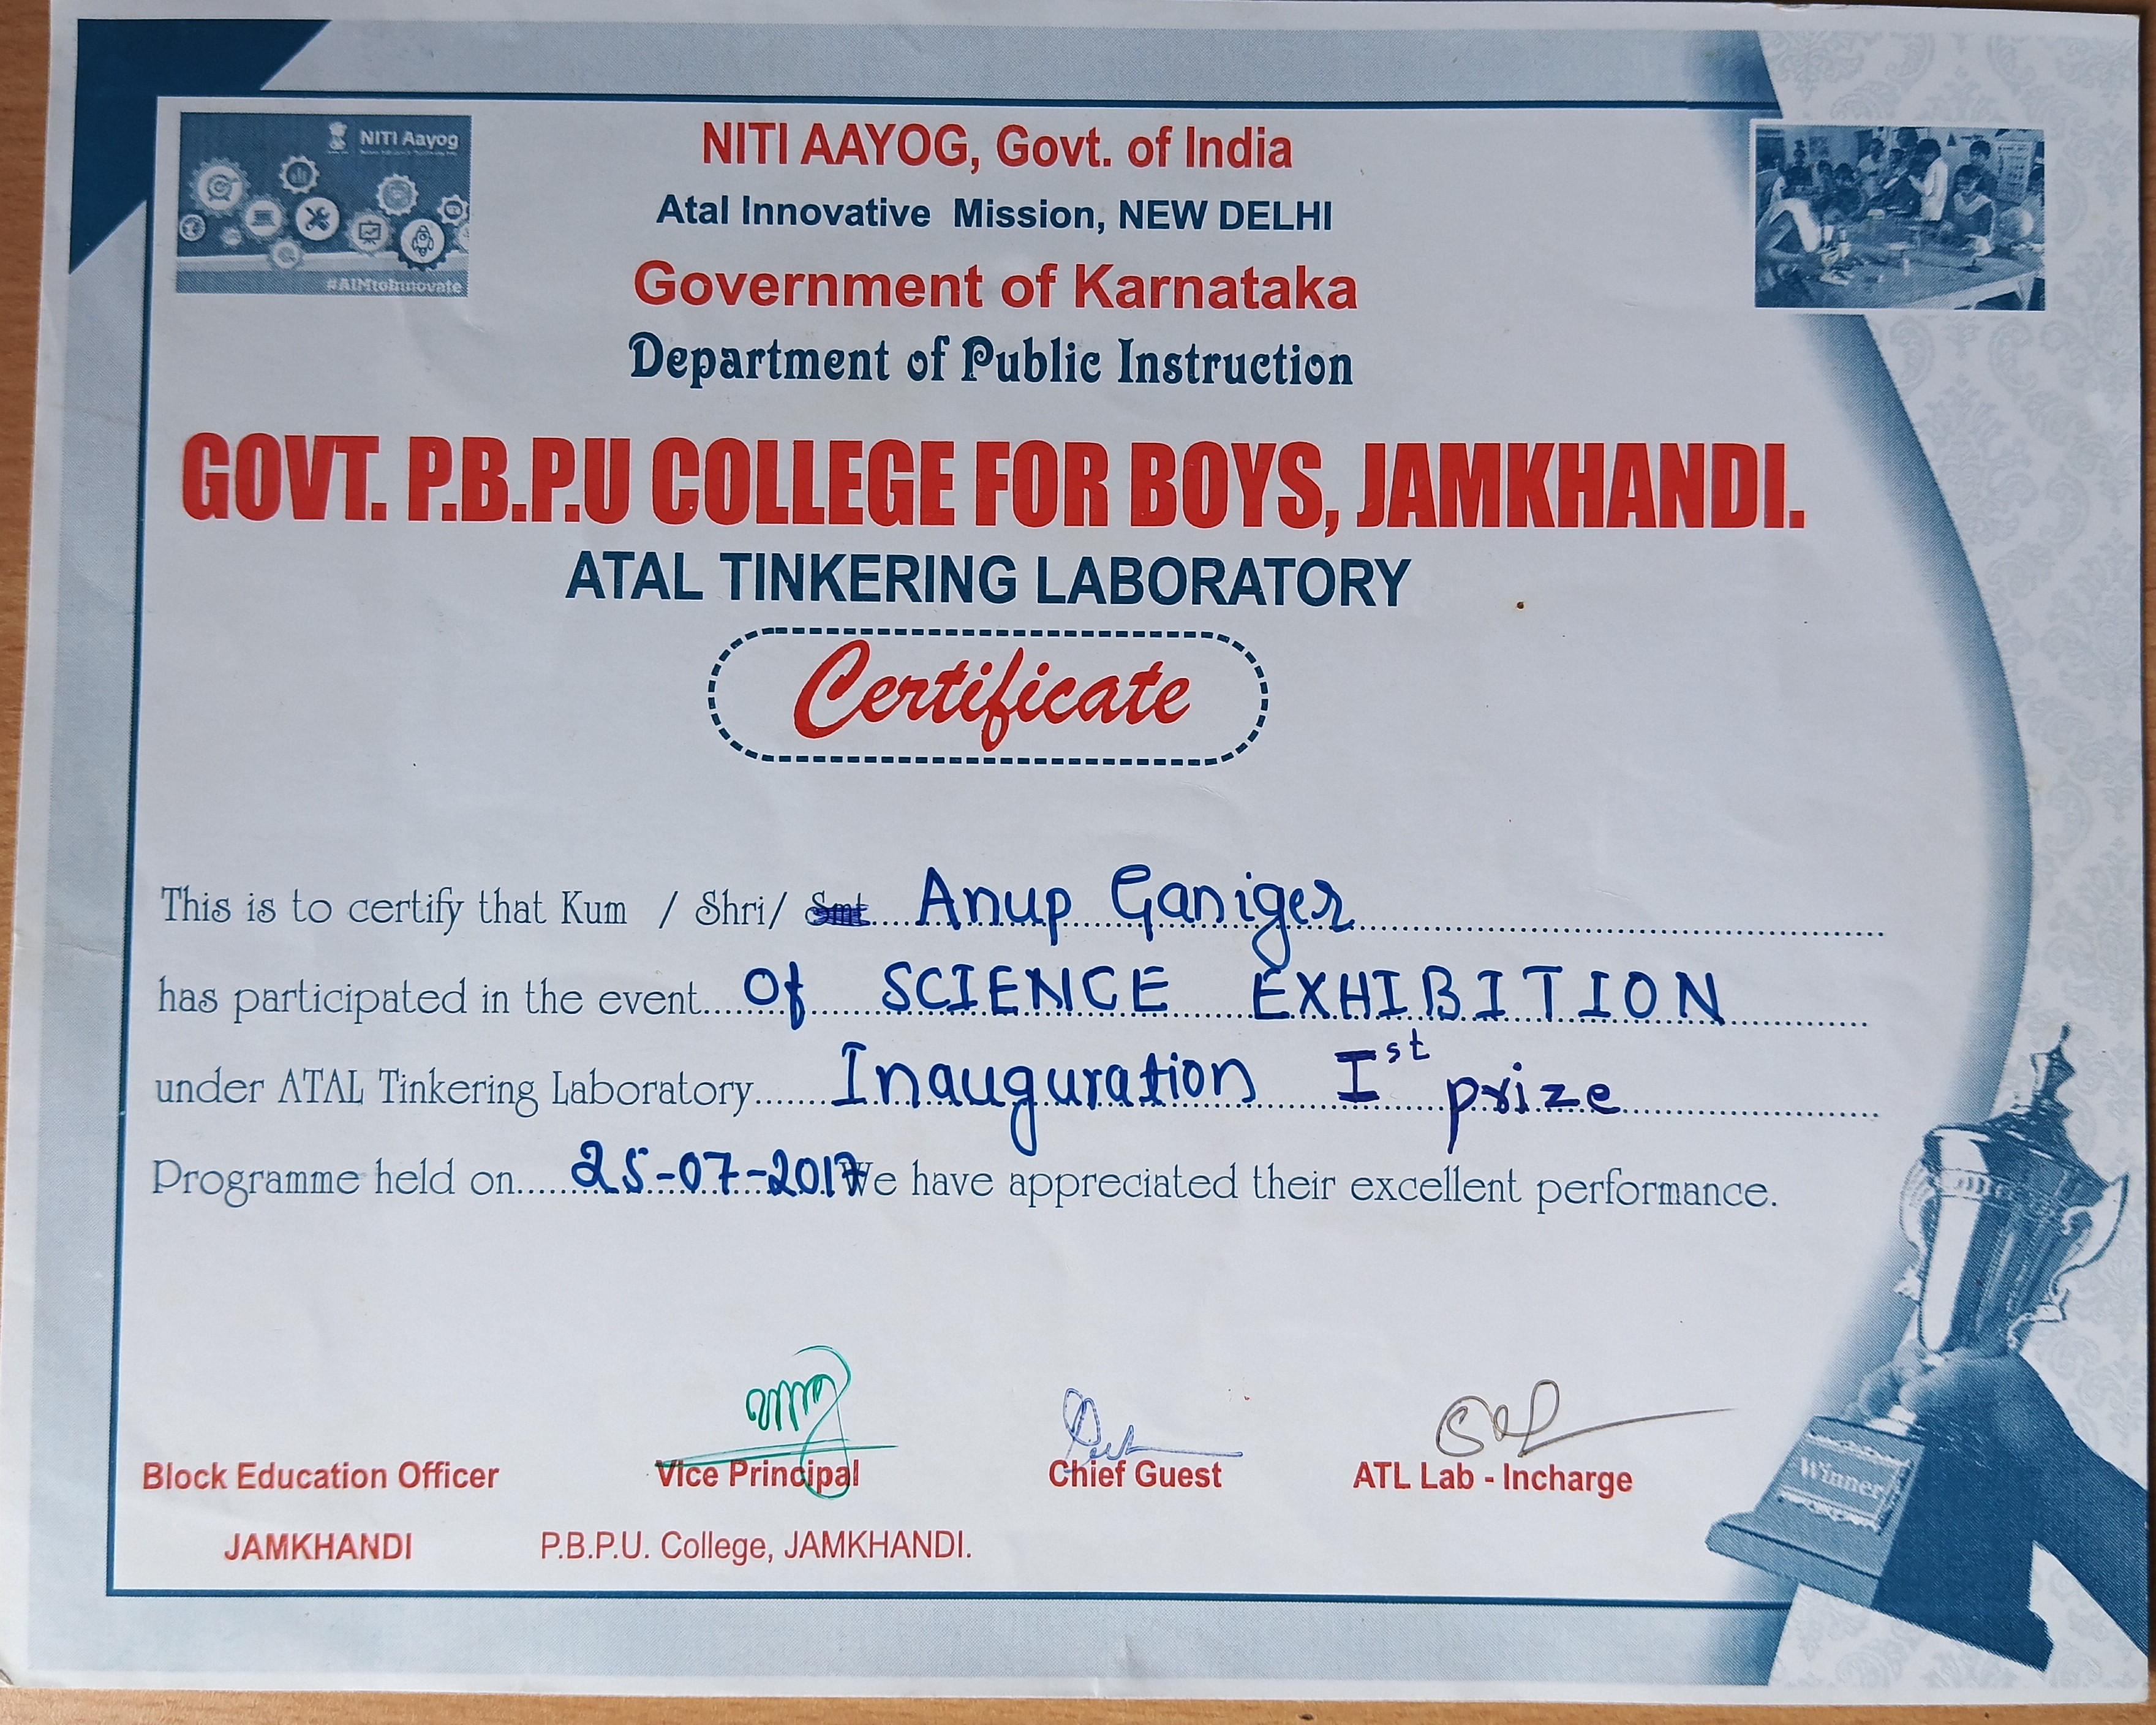 NITI Aayog
#AIMtoInnovate
NITI AAYOG, Govt. of India
Atal Innovative Mission, NEW DELHI
Government of Karnataka
Department of Public Instruction
GOVT. P.B.P.U COLLEGE FOR BOYS, JAMKHANDI.
ATAL TINKERING LABORATORY
Certificate
This is to certify that Kum / Shri/ Smt.... Anup Ganiger
has participated in the event... Of SCIENCE EXHIBITION
under ATAL Tinkering Laboratory...... Inauguration Ist prize
Programme held on..... 25-07-2017 We have appreciated their excellent performance.
Block Education Officer
JAMKHANDI
Vice Principal
P.B.P.U. College, JAMKHANDI.
Chief Guest
ATL Lab - Incharge
Winner